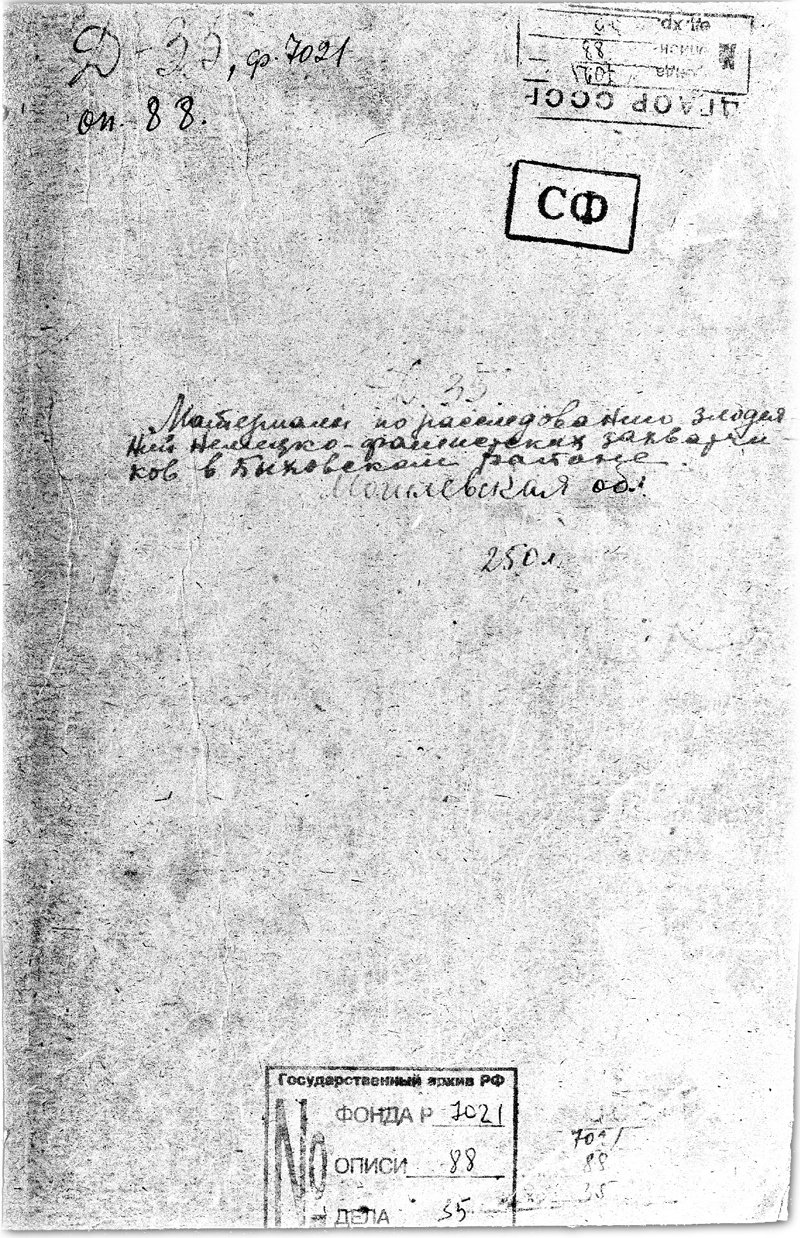 Д-35, ф. 7021
оп. 88.
ЦГАОР СССР
фонда 7021
описи 88
ед. хр. 35
№
СФ
Д 35
Материалы по расследованию злодея
ний немецко-фашистских захватчи-
ков в Быховском районе.
Могилевская обл.
250 л.
Государственный архив РФ
№
ФОНДА Р 7021
ОПИСИ 88
ДЕЛА 35
7021
88
35